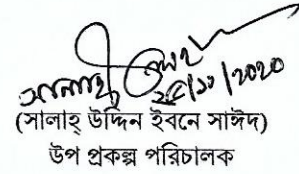 ২৫/১১/২০২০
(সালাহ্ উদ্দিন ইবনে সাঈদ)
উপ প্রকল্প পরিচালক